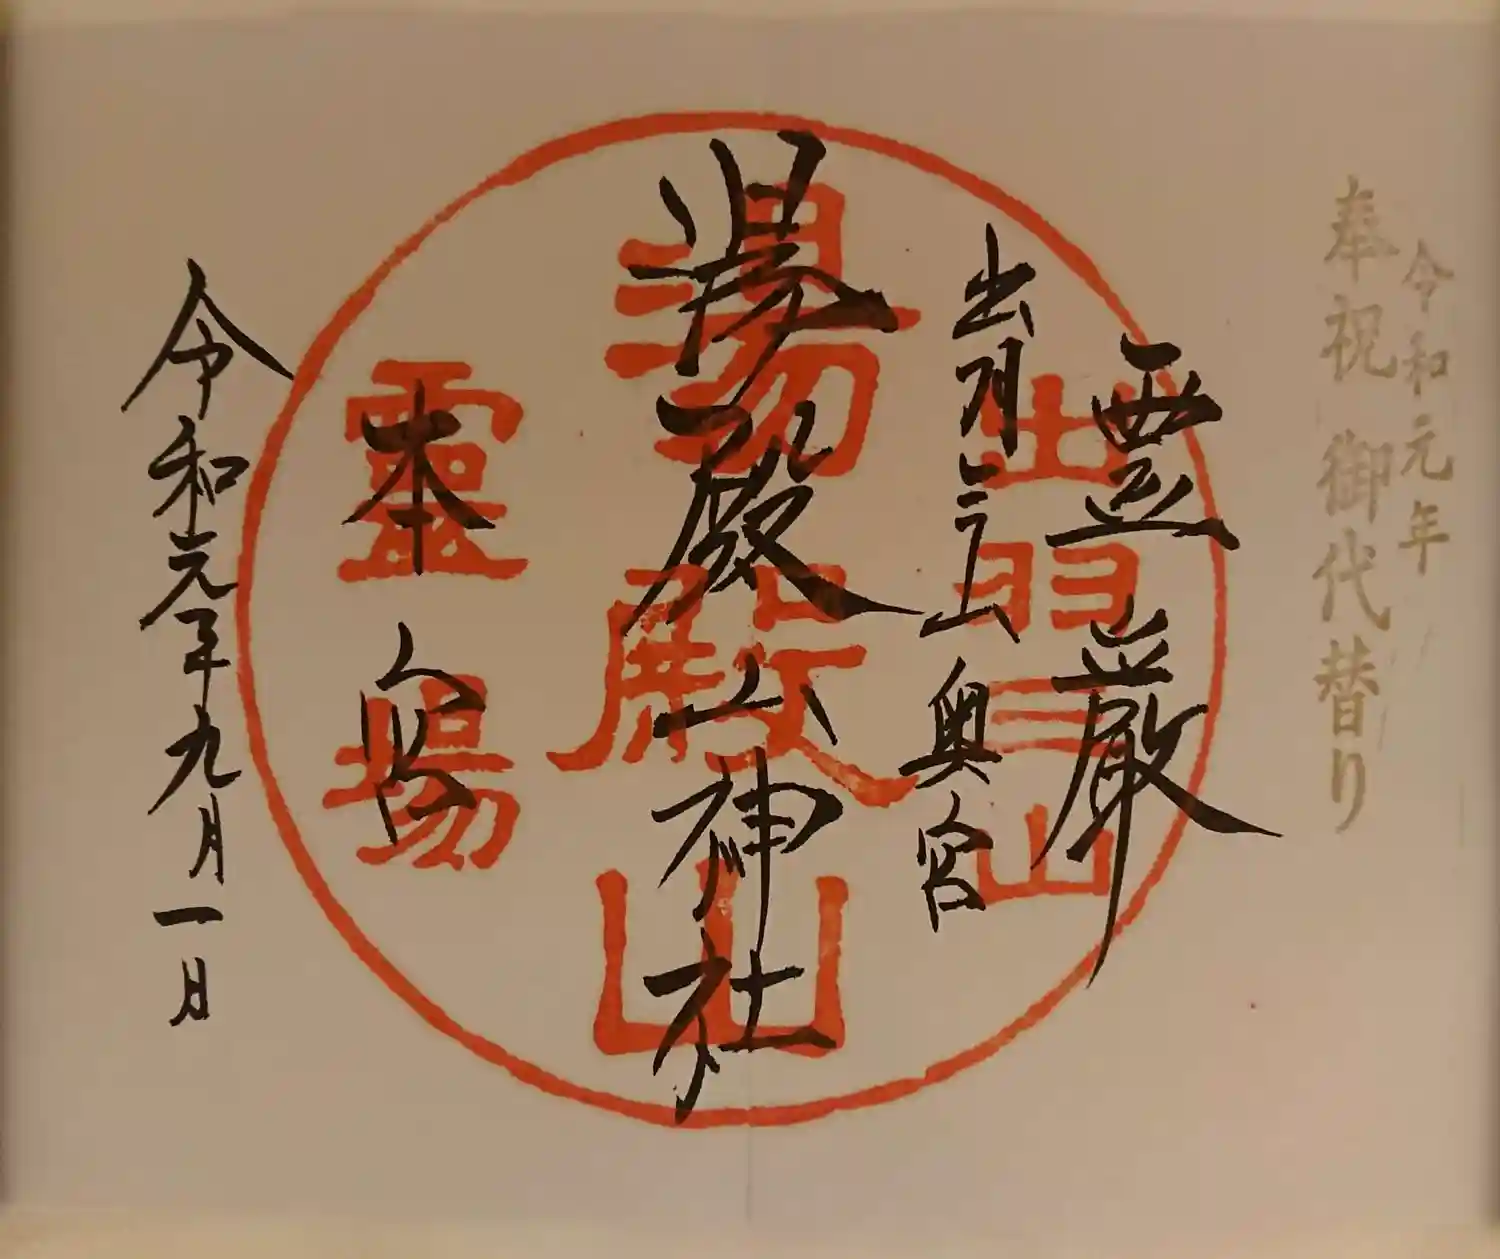 令和元年
奉祝 御代替り
霊厳
出羽三山奥宮
湯殿山神社
本宮
令和元年九月一日
出羽三山
湯殿山
靈場